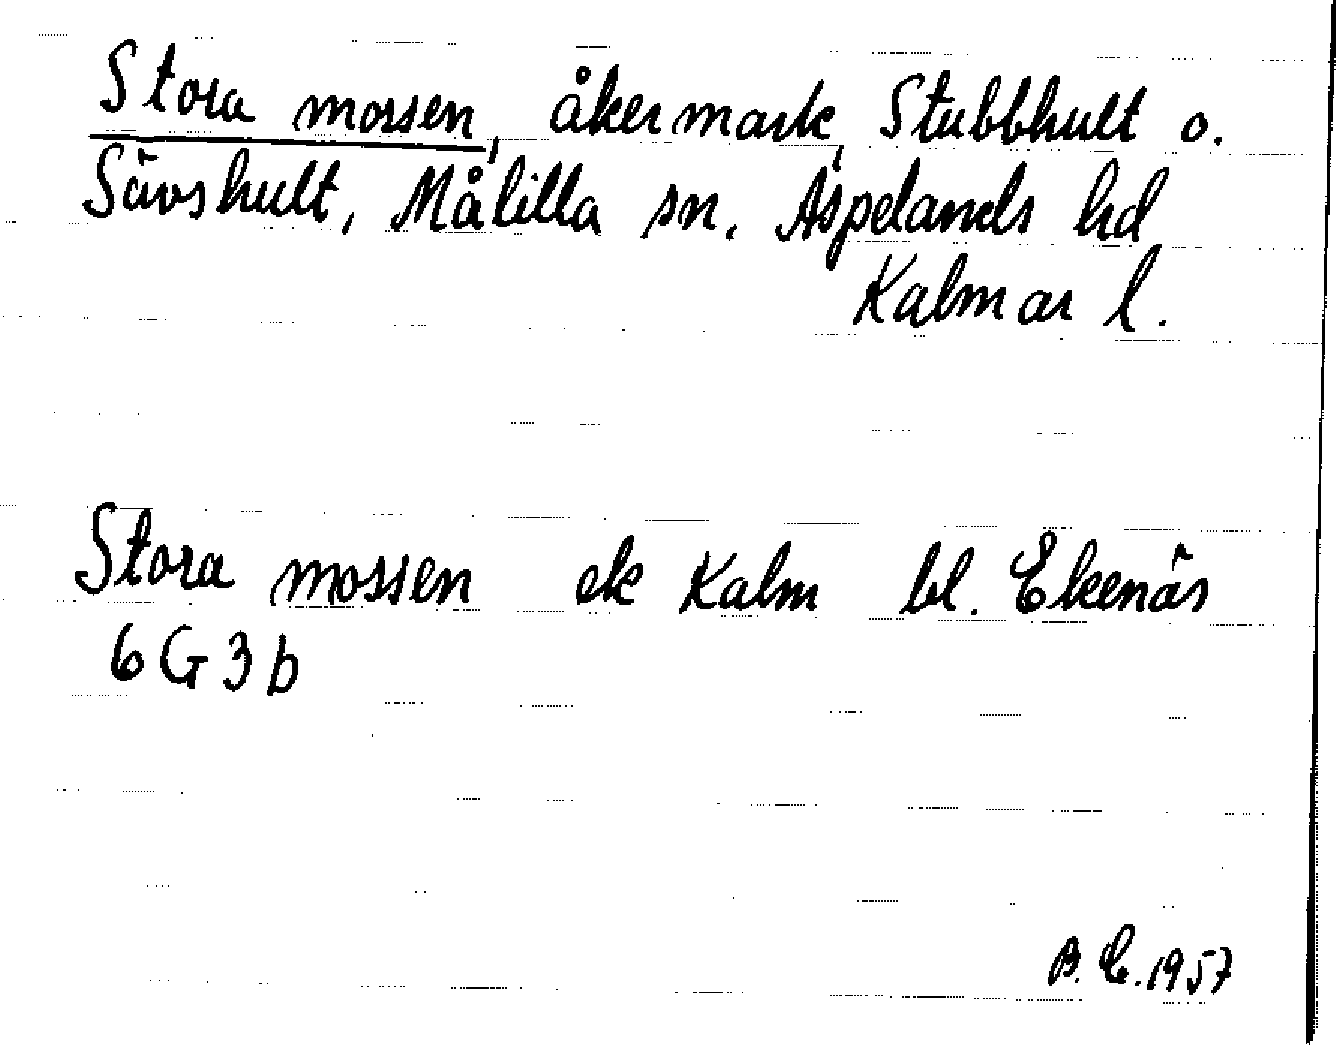 Stora mossen, åkermark, Stubbhult o.
Sävshult, Målilla sn. Aspelands hd
Kalmar l.
Stora mossen ek Kalm bl. Ekenäs
6G3b
B. E. 1957